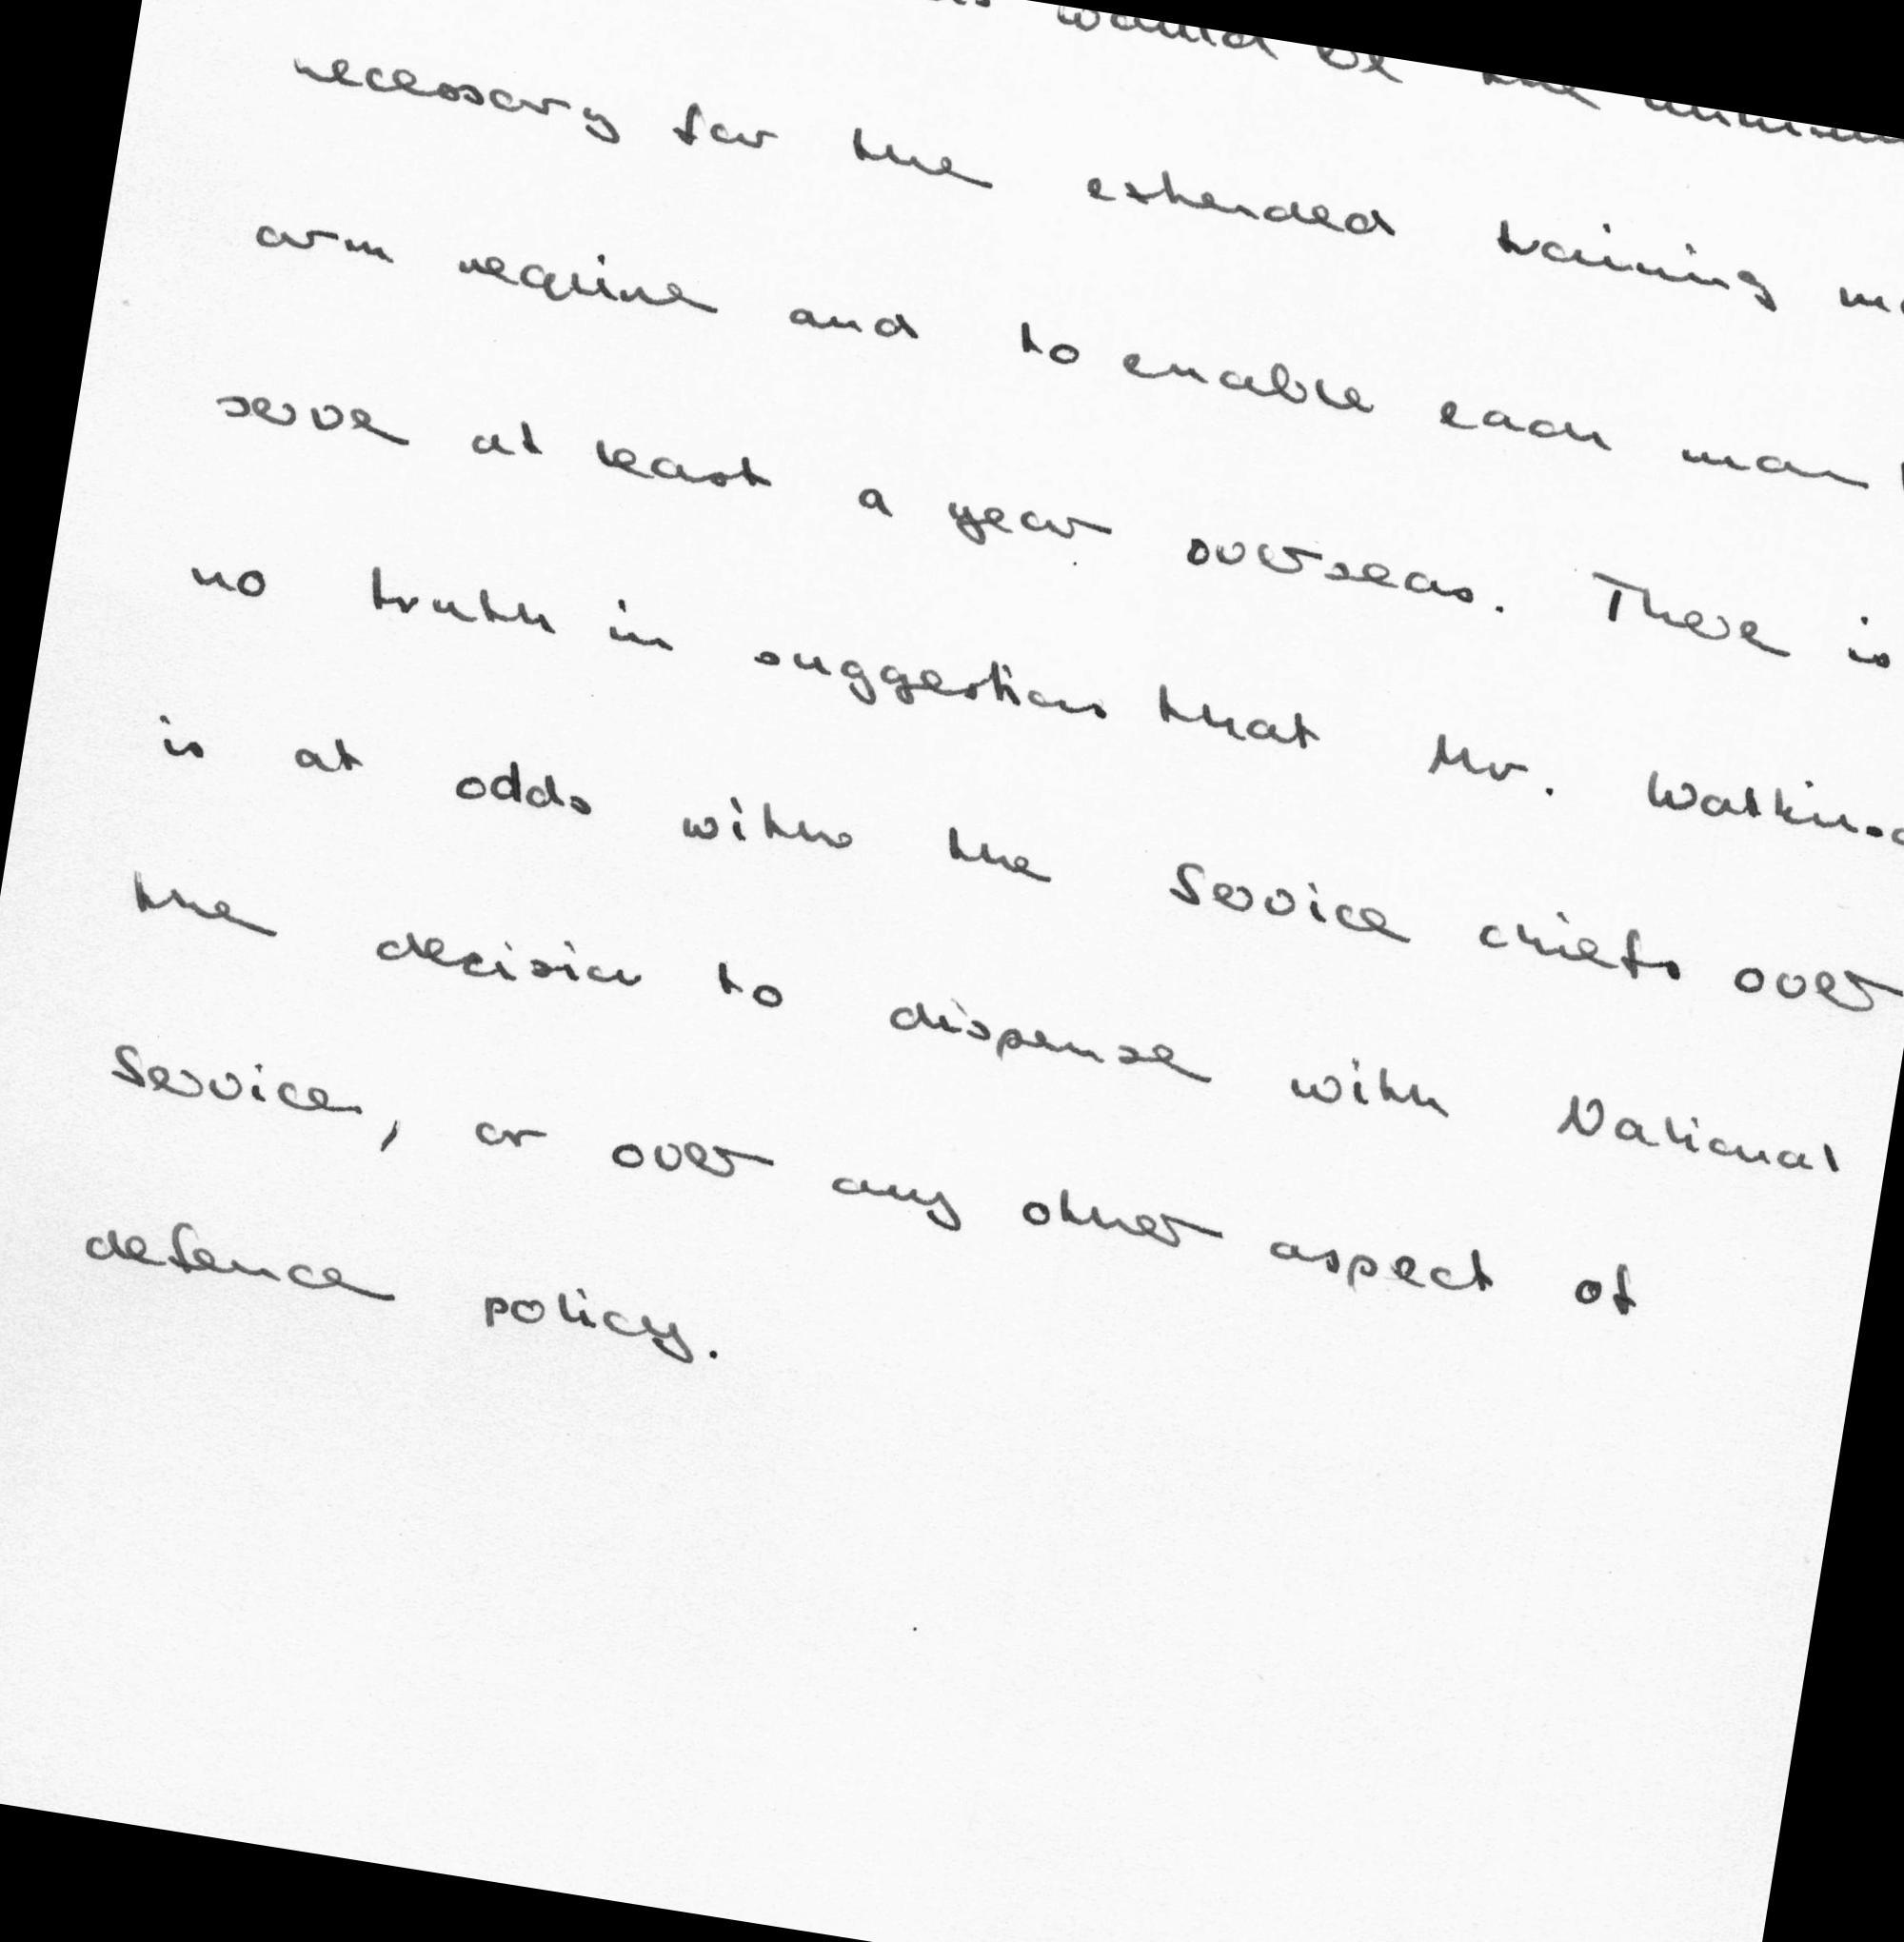 would be the
necessary for the extended training
arm require and to enable each man
serve at least a year overseas. There is
no truth in suggestions that Mr.
is at odds with the Service chiefs over
the decision to dispense with National
Service, or over any other aspect of
defence policy.